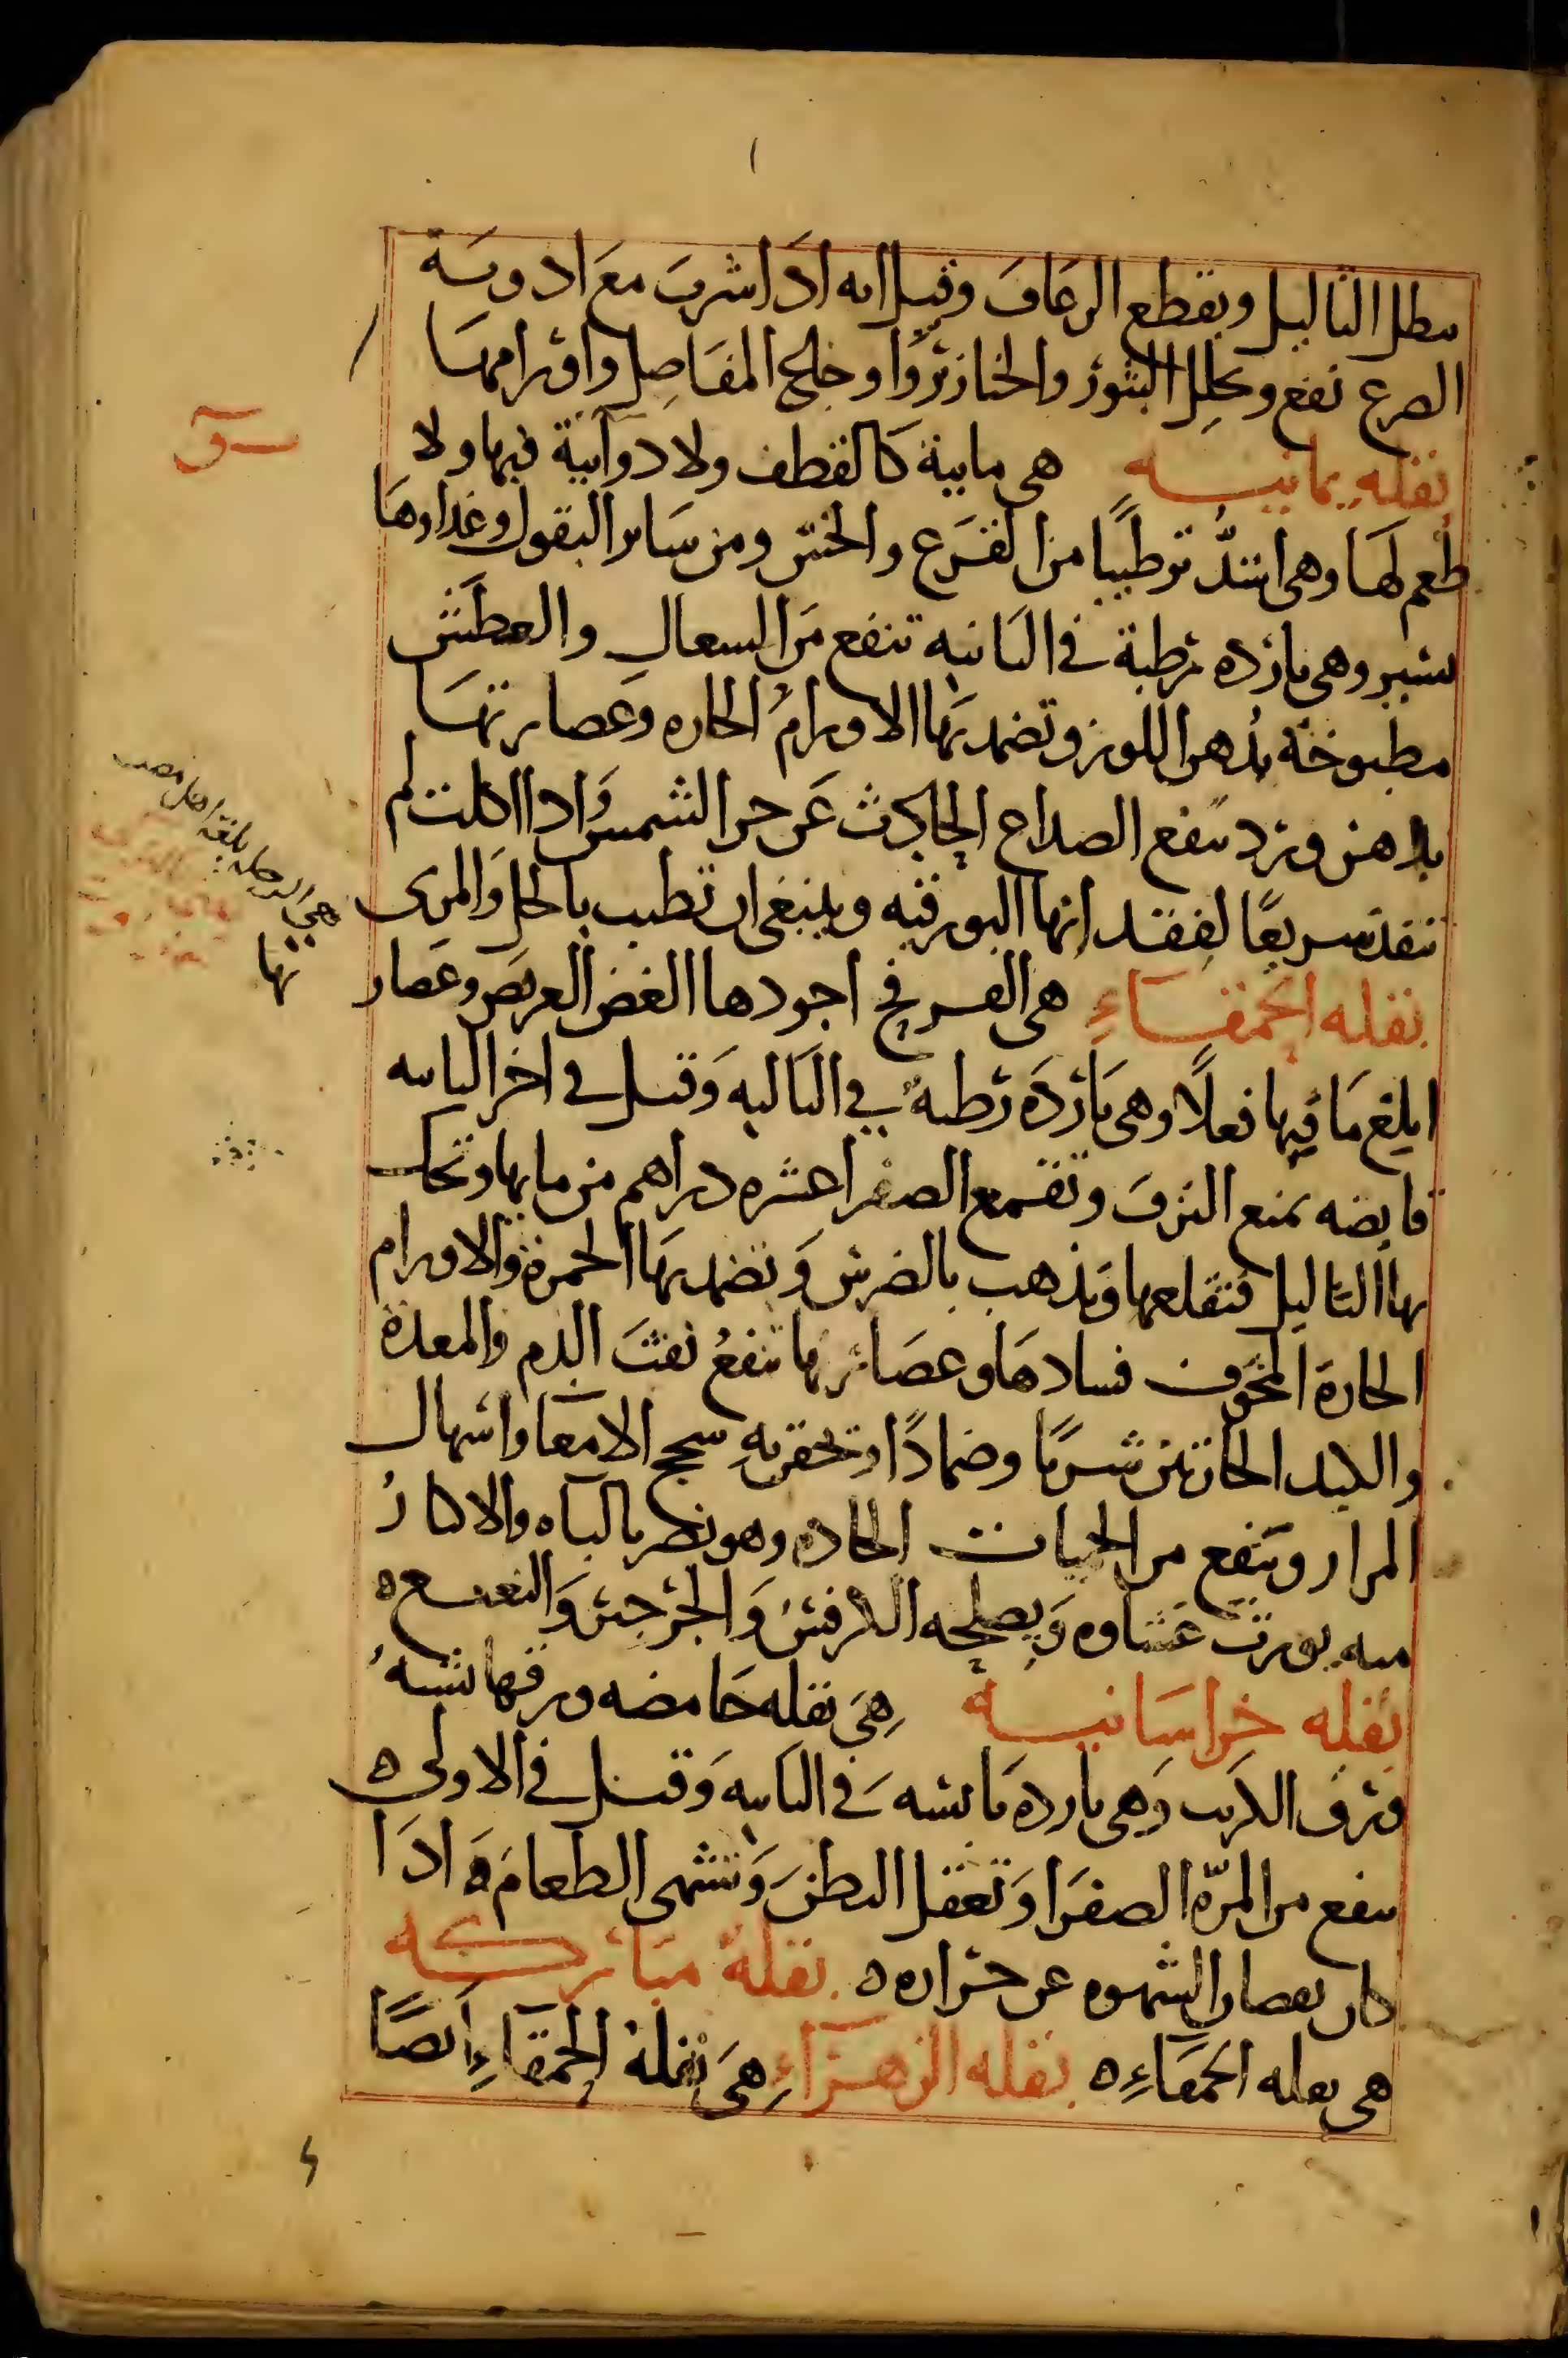 يبطل الثاليل ويقطع الرعاف وقيل انه اذا شرب مع ادوية
الصرع نفع ويحلل البثور والخنازير واوخلع المفاصل واورامها
بقله يمانيه هى مايية كالقطف ولا دوآيية فيها ولا
طعم لها وهى اشدّ ترطيبًا من القرع والخس ومن ساير البقول وغذاوها
يسير وهى بارده رطبة فى الثانيه تنفع من السعال والعطش
مطبوخة بدهن اللوز وتضمد بها الاورام الحاره وعصارتها
بدهن ورد ينفع الصداع الحادث عن حر الشمس واذا اكلت لم
تنفذ سريعًا لفقد انها البورقيه وينبغى ان تطيب بالخل والمرى
بقله الحمقاءِ هى الفرفخ اجودها الغض العريض وعصار
تها
ابلغ ما فيها فعلًا وهى بارده رطبه فى الثالثه وقيل فى اخر الثانيه
قابضه تمنع النزف وتقمع الصفرا عشره دراهم من مايها وتحك
بها الثاليل فتقلعها ويذهب بالضرس وتضمد بها الحمرة والاورام
الحارة المخوف فسادها وعصارتها تنفع نفث الدم والمعدة
والكبد الحارتين شربًا وضمادًا وتحقن به سحج الامعا واسهال
المرار وينفع من الحميات الحاده وهو يضر بالباه والاكثار
منه يورث غشاوه ويصلحه الكرفس والجرجير والنعنع ه
بقله خراسانيه هى بقله حامضه ورقها يشبه
ورق الكرنب وهى بارده يابسه فى الثانيه وقيل فى الاولى ه
ينفع من المرّه الصفرا وتعقل البطن وتشهى الطعام ه اذا
كان نقصان الشهوه عن حراره ه بقلة مباركه
هى بقله الحمقاءِ ه بقله الزهراءِ هى بقلة الحمقاءِ ايضًا
هى الرجله بلغة اهل مصر